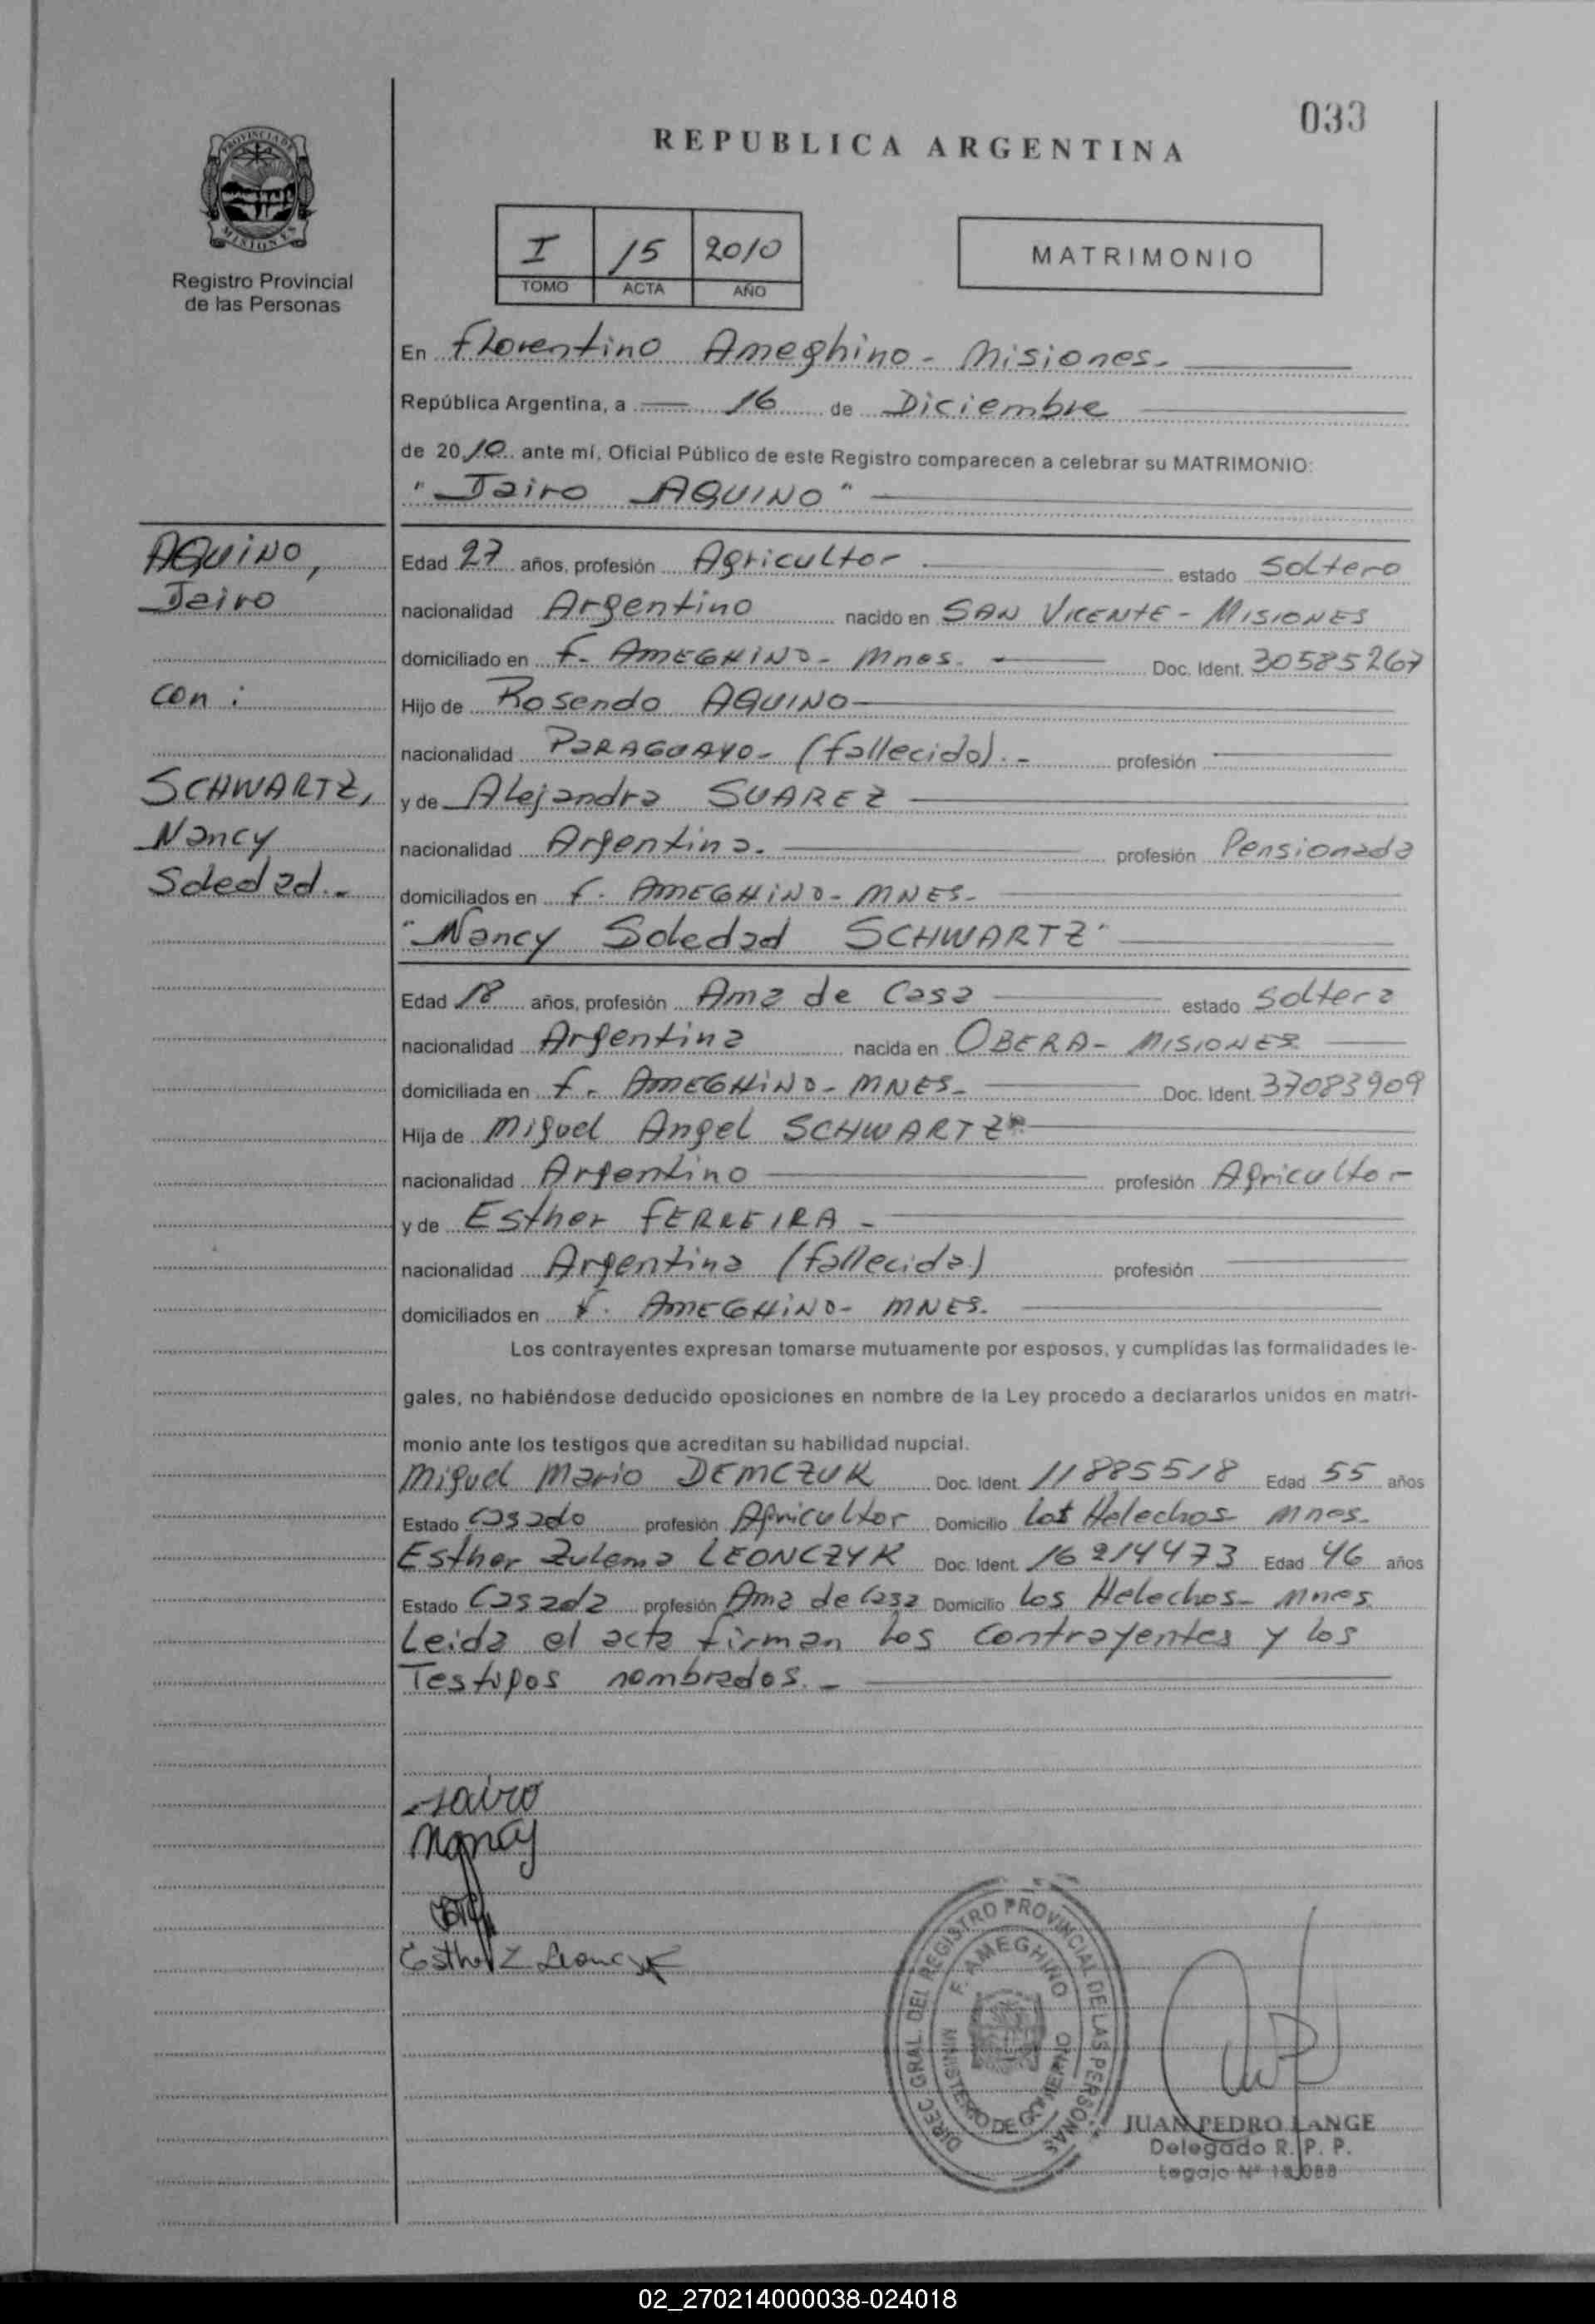 033
REPUBLICA ARGENTINA
PROVINCIA DE MISIONES
Registro Provincial
de las Personas
I 15 2010
TOMO ACTA AÑO
MATRIMONIO
En Florentino Ameghino - Misiones.
República Argentina, a 16 de Diciembre
de 2010 ante mí, Oficial Público de este Registro comparecen a celebrar su MATRIMONIO:
"Jairo AQUINO"
AQUINO,
Jairo
con :
SCHWARTZ,
Nancy
Soledad.-
Edad 27 años, profesión Agricultor estado Soltero
nacionalidad Argentino nacido en SAN VICENTE - MISIONES
domiciliado en F. AMEGHINO - Mnes. Doc. Ident. 30585267
Hijo de Rosendo AQUINO
nacionalidad PARAGUAYO - (fallecido).- profesión
y de Alejandra SUAREZ
nacionalidad Argentina. profesión Pensionada
domiciliados en F. AMEGHINO - MNES.
"Nancy Soledad SCHWARTZ"
Edad 18 años, profesión Ama de Casa estado Soltera
nacionalidad Argentina nacida en OBERA - MISIONES
domiciliada en F. AMEGHINO - MNES - Doc. Ident. 37083909
Hija de Miguel Angel SCHWARTZ
nacionalidad Argentino profesión Agricultor
y de Esther FERREIRA -
nacionalidad Argentina (fallecida) profesión
domiciliados en F. AMEGHINO - MNES.
Los contrayentes expresan tomarse mutuamente por esposos, y cumplidas las formalidades le-
gales, no habiéndose deducido oposiciones en nombre de la Ley procedo a declararlos unidos en matri-
monio ante los testigos que acreditan su habilidad nupcial.
Miguel Mario DEMCZUK Doc. Ident. 11885518 Edad 55 años
Estado Casado profesión Agricultor Domicilio Los Helechos - Mnes.
Esther Zulema LEONCZYK Doc. Ident. 16214473 Edad 46 años
Estado Casada profesión Ama de Casa Domicilio Los Helechos - Mnes
Leida el acta firman los contrayentes y los
Testigos nombrados.-
Jairo
Nancy
Esther Z Leonczyk
DIREC. GRAL. DEL REGISTRO PROVINCIAL DE LAS PERSONAS
F. AMEGHINO
MINISTERIO DE GOBIERNO
JUAN PEDRO LANGE
Delegado R. P. P.
Legajo Nº
02_270214000038-024018